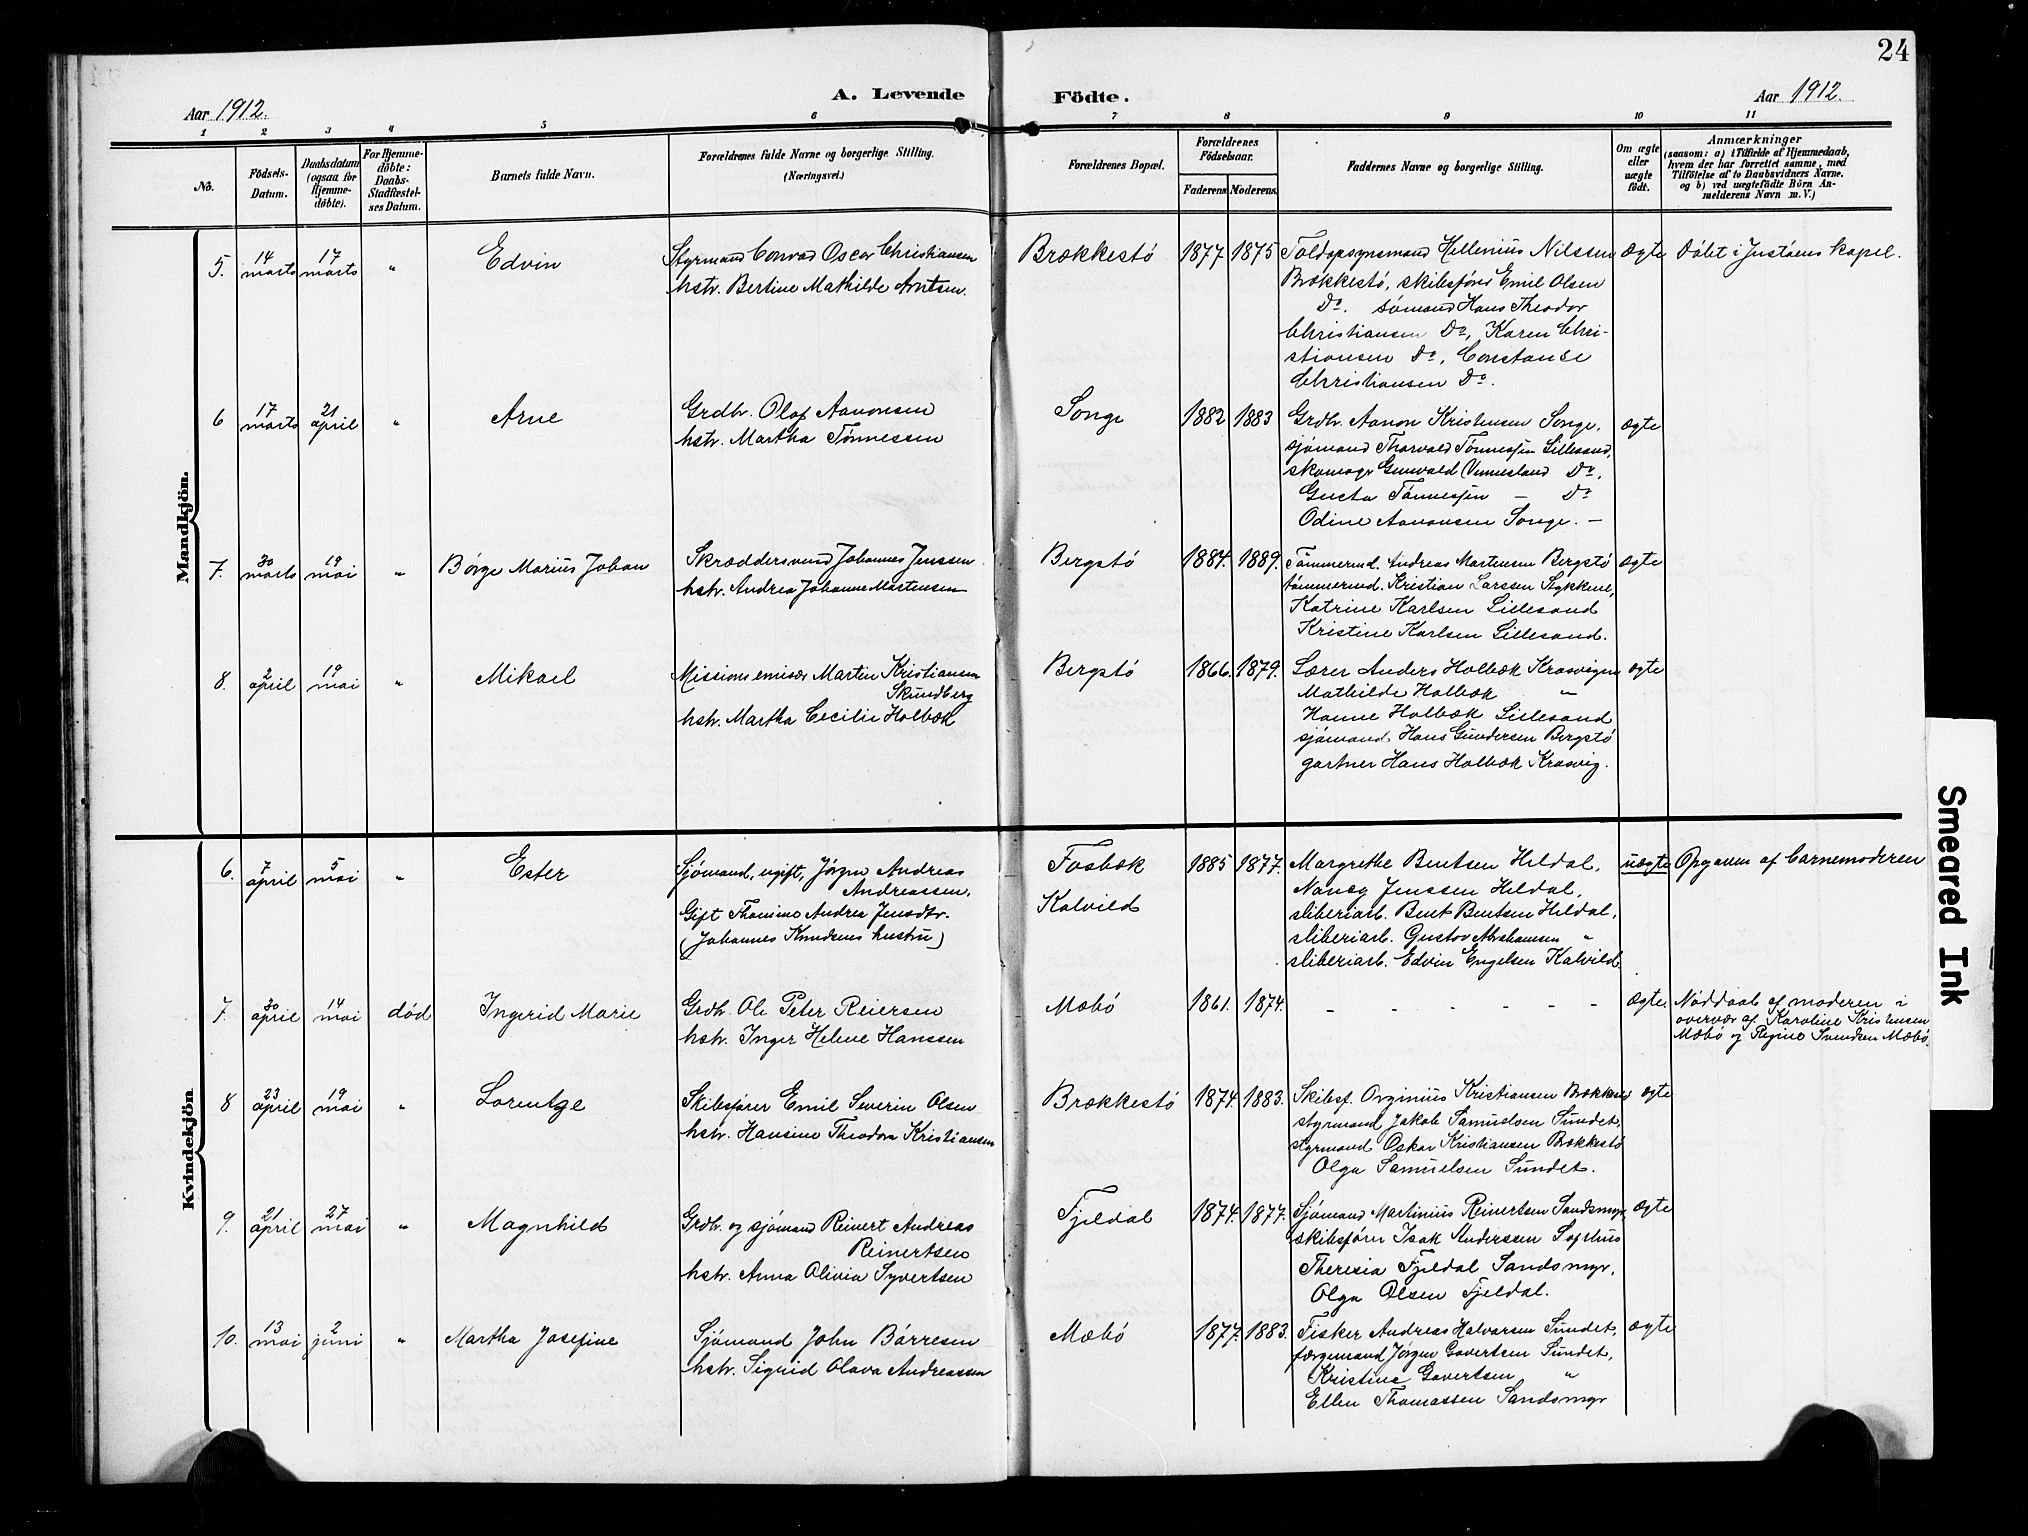 24
A. Levende Födte.
Aar 1912.
Aar 1912.
1 2 3 4 5 6 7 8 9 10 11
No.
Födsels-
Datum.
Daabsdatum
(ogsaa for
Hjemme-
döbte).
For Hjemme-
döbte:
Daabs-
Stadfæstel-
ses Datum.
Barnets fulde Navn.
Forældrenes fulde Navne og borgerlige Stilling.
(Næringsvei.)
Forældrenes Bopæl.
Forældrenes
Födselsaar.
Faderens. Moderens.
Faddernes Navne og borgerlige Stilling.
Om ægte
eller
uægte
födt.
Anmærkninger
(saasom: a) i Tilfælde af Hjemmedaab,
hvem der har forrettet samme, med
Tilföielse af to Daabsvidners Navne.
og b) ved uægtefödte Börn An-
melderens Navn m. V.)
Mandkjön.
5. 14 marts 17 marts " Edvin
Styrmand Conrad Oscar Christiansen
hstr. Bertine Mathilde Arntsen.
Brækkestö 1877 1875
Toldopsynsmand Hellenius Nilssen
Brækkestö, skibsförer Emil Olsen
Do. sömand Hans Theodor
Christiansen Do, Karen Chri-
stiansen Do, Constanse
Christiansen Do.
Ægte Döbt i Justöens kapel.
6 17 marts 21 april " Arne
Grdbr. Olaf Aanonsen
hstr. Martha Tönnessen
Songe 1882 1883
Grdbr. Aanon Kristensen Songe,
sjömand Thorvald Tönnessen Lillesand,
skomagr Gunvald Vennesland Do,
Gusta Tönnessen – Do
Odine Aanonsen Songe. –
ægte
7. 30 marts 19 mai " Börge Marius Johan
Skræddersvend Johannes Jenssen
hstr. Andrea Johanne Mortensen
Bergstö 1884. 1889.
Tömmermd. Andreas Mortensen Bergstö
tömmermd. Kristian Larssen Stykkene,
Katrine Karlsen Lillesand
Kristine Karlsen Lillesand.
ægte
8. 2 april 19 mai " Mikael
Missions emisær Martin Kristiansen
Skundberg
hstr. Martha Cecilie Holbæk
Bergstö 1866. 1879.
Lærer Anders Holbæk Krosvigen
Mathilde Holbæk "
Hanne Holbæk Lillesand
sjömand. Hans Gundersen Bergstö
gartner Hans Holbæk Krosvig.
ægte
Kvindekjön
6. 7 april 5 mai " Ester
Sjömand, ugift, Jörgen Andreas
Andreassen.
Gift Thomine Andrea Jensdtr.
(Johannes Knudsens hustru)
Fosbæk
Kalvild
1885 1877.
Margrethe Bentsen Heldal,
Nancy Jenssen Heldal,
sliberiarb. Bent Bentsen Heldal,
sliberiarb. Gustav Abrahamsen "
sliberiarb. Edvin Engelsen Kalvild.
uægte Opgaven af barnemoderen
7. 30 april 14 mai död Ingerid Marie
Grdbr. Ole Peter Reiersen
hstr. Inger Helene Hanssen
Mæbö 1861. 1874.
– – – – – –
Ægte. Nöddaab af moderen i
overvær af Karoline Kristensen
Mæbö og Regine Svendsen Mæbö.
8 23 april 19 mai " Lorentze
Skibsförer Emil Severin Olsen
hstr. Hansine Theodora Kristiansen
Brækkestö 1874. 1883.
Skibsf. Orginius Kristiansen Brækkes
styrmand Jakob Samuelsen Sundet,
styrmand Oskar Kristiansen Brækkestö
Olga Samuelsen Sundet.
ægte
9. 21 april 27 mai " Magnhild
Grdbr. og sjömand Reinert Andreas
Reinertsen
hstr. Anna Olivia Syvertsen
Fjeldal 1874. 1877.
Sjömand Martinius Reinertsen Sandsmyr,
skibsförer Isak Anderssen
Theresia Fjeldal Sandsmyr,
Olga Olsen Fjeldal.
Ægte
10. 13 mai 2 juni " Martha Josefine
Sjömand John Börresen
hstr. Sigrid Olava Andreassen
Mæbö 1877. 1883.
Fisker Andreas Halvorsen Sundet,
færgemand Jörgen Govertsen Sundet,
Kristine Govertsen "
Ellen Thomassen Sandsmyr
ægte
Smeared Ink